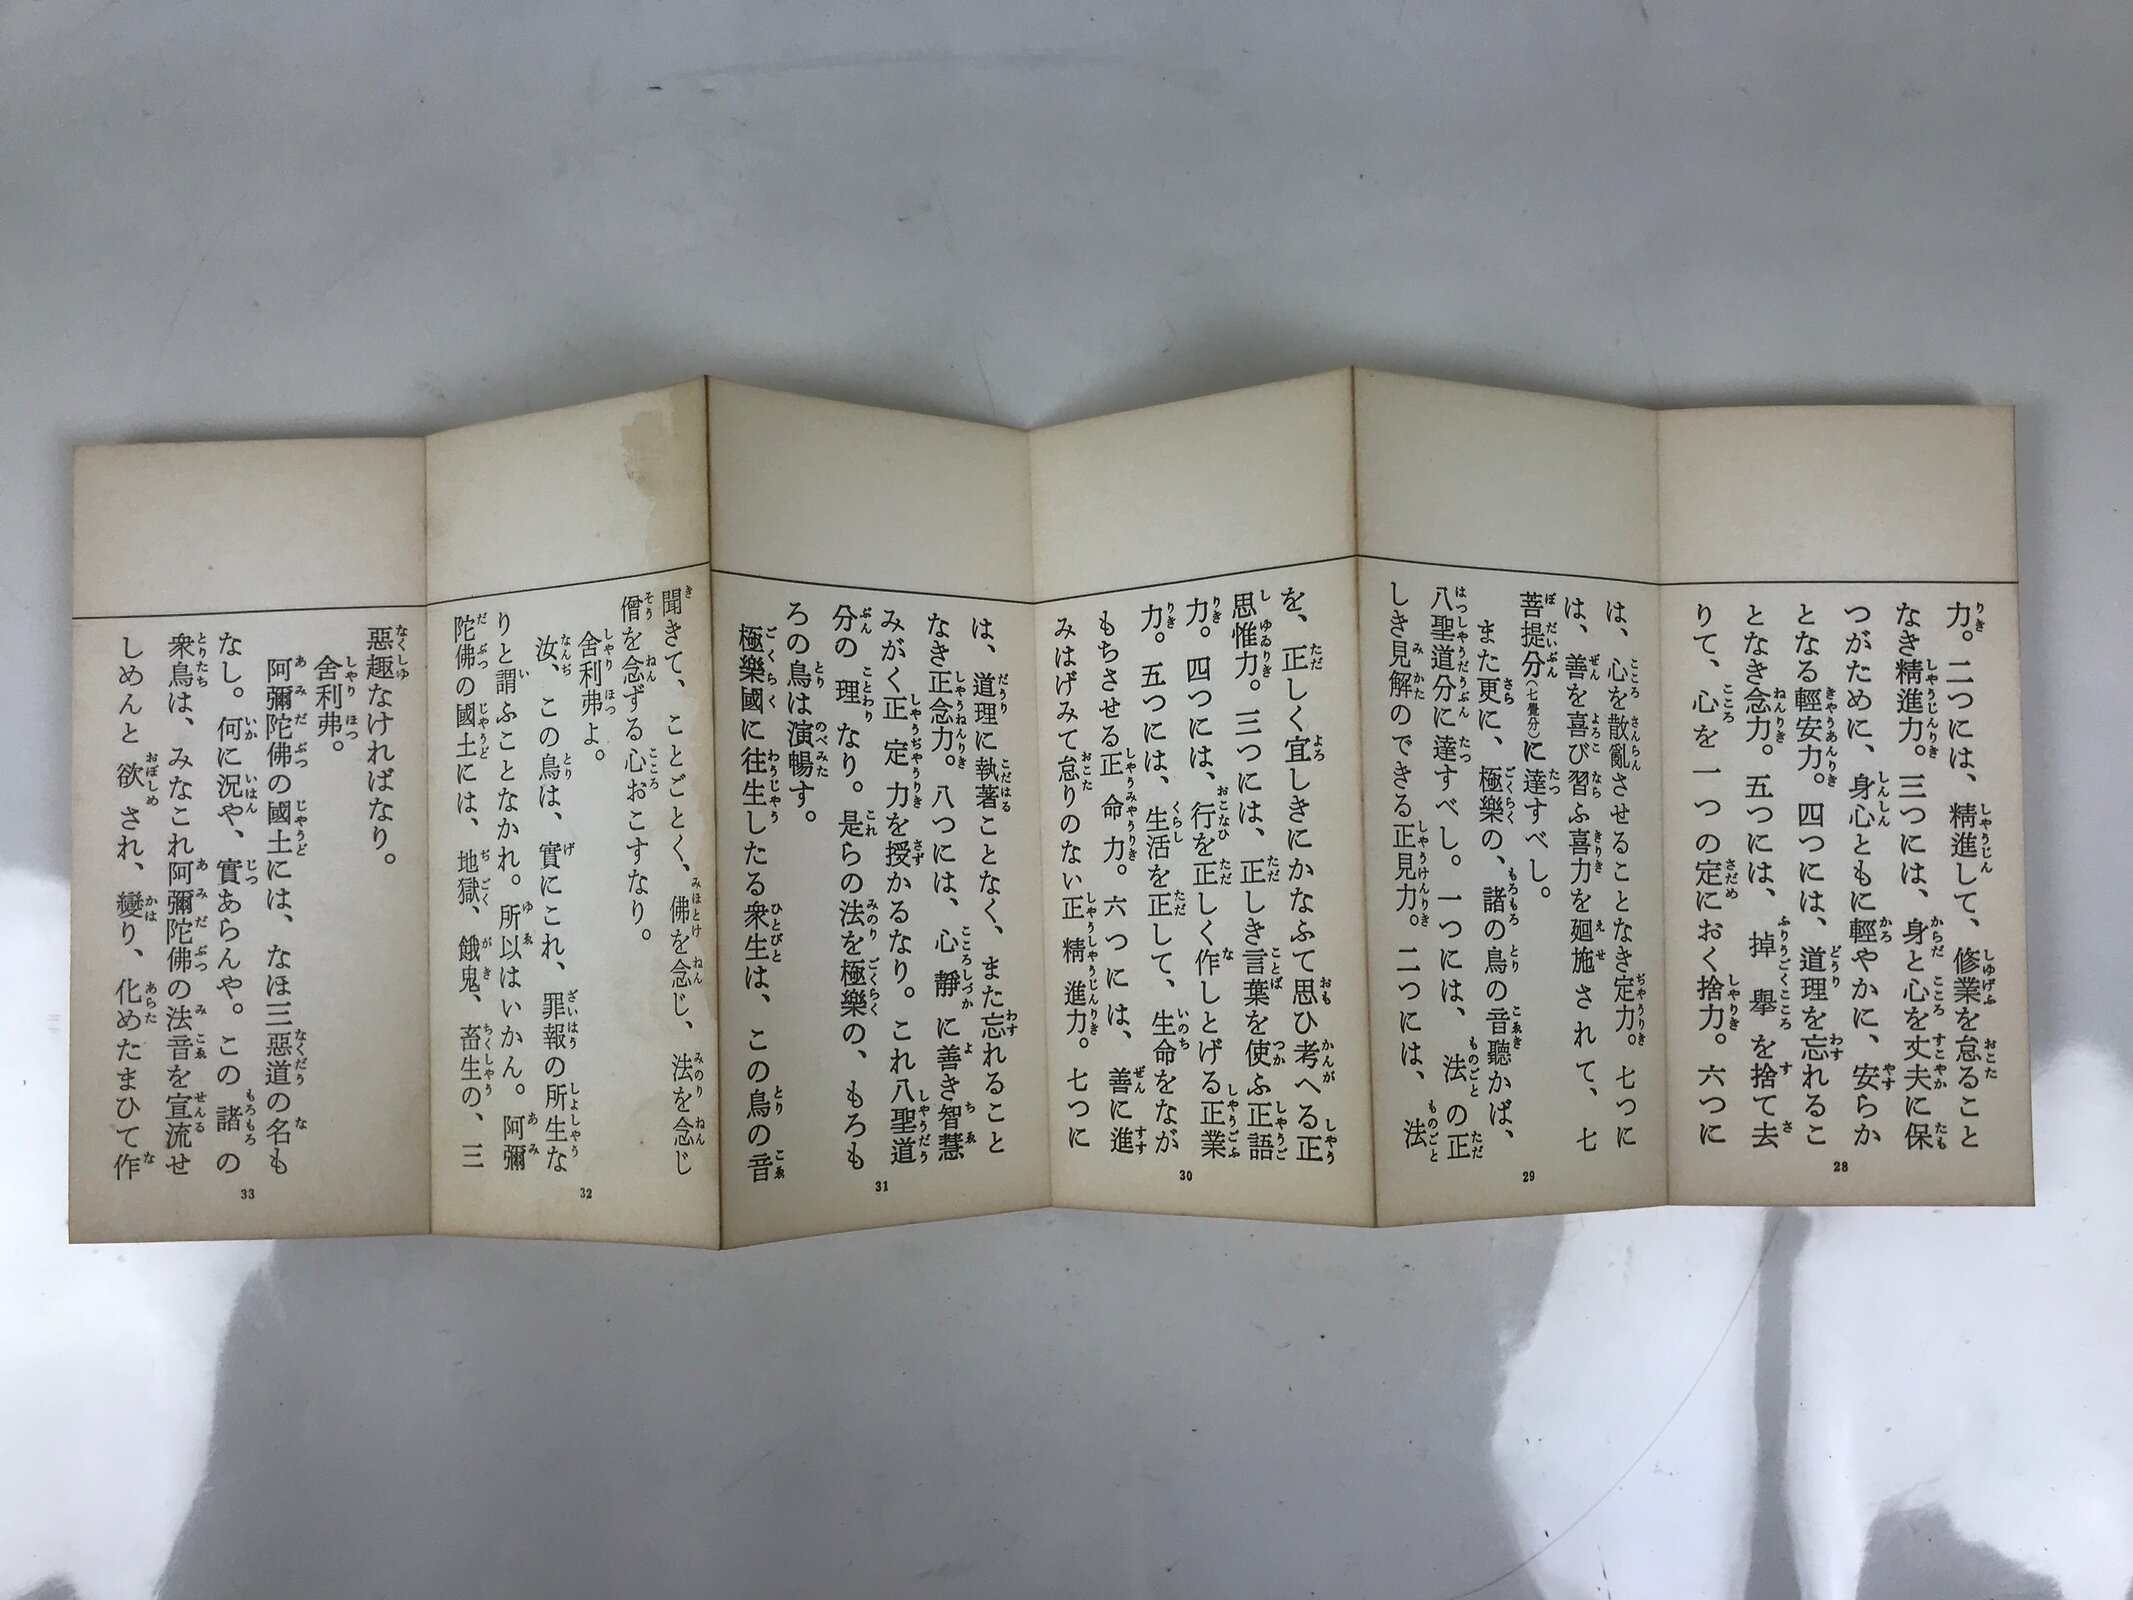 力。二つには、精進して、修業を怠ること
なき精進力。三つには、身と心を丈夫に保
つがために、身心ともに輕やかに、安らか
となる輕安力。四つには、道理を忘れるこ
となき念力。五つには、掉擧を捨て去
りて、心を一つの定におく捨力。六つに
28
は、心を散亂させることなき定力。七つに
は、善を喜び習ふ喜力を廻施されて、七
菩提分(七覺分)に達すべし。
また更に、極樂の、諸の鳥の音聽かば、
八聖道分に達すべし。一つには、法の正
しき見解のできる正見力。二つには、法
29
を、正しく宜しきにかなふて思ひ考へる正
思惟力。三つには、正しき言葉を使ふ正語
力。四つには、行を正しく作しとげる正業
力。五つには、生活を正して、生命をなが
もちさせる正命力。六つには、善に進
みはげみて怠りのない正精進力。七つに
30
は、道理に執著ことなく、また忘れること
なき正念力。八つには、心靜に善き智慧
みがく正定力を授かるなり。これ八聖道
分の理なり。是らの法を極樂の、もろも
ろの鳥は演暢す。
極樂國に往生したる衆生は、この鳥の音
31
聞きて、ことごとく、佛を念じ、法を念じ
僧を念ずる心おこすなり。
舍利弗よ。
汝、この鳥は、實にこれ、罪報の所生な
りと謂ふことなかれ。所以はいかん。阿彌
陀佛の國土には、地獄、餓鬼、畜生の、三
32
惡趣なければなり。
舍利弗。
阿彌陀佛の國土には、なほ三惡道の名も
なし。何に況や、實あらんや。この諸の
衆鳥は、みなこれ阿彌陀佛の法音を宣流せ
しめんと欲され、變り、化めたまひて作
33